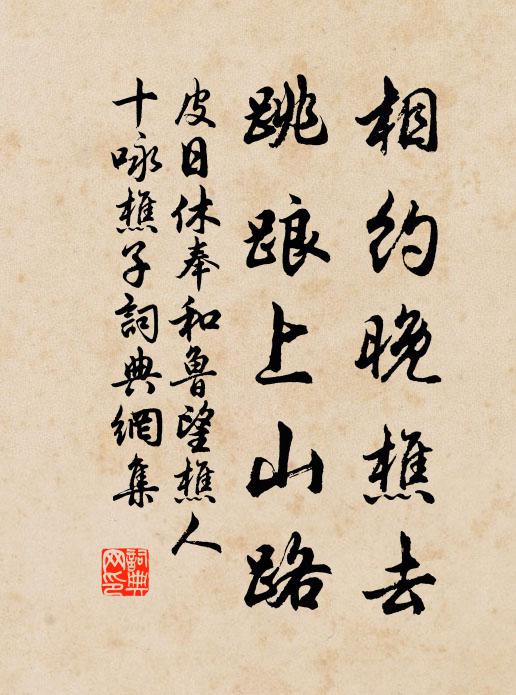 相约晚樵去
跳踉上山路
皮日休奉和鲁望樵人
十咏樵子詞典網集
詞典网印